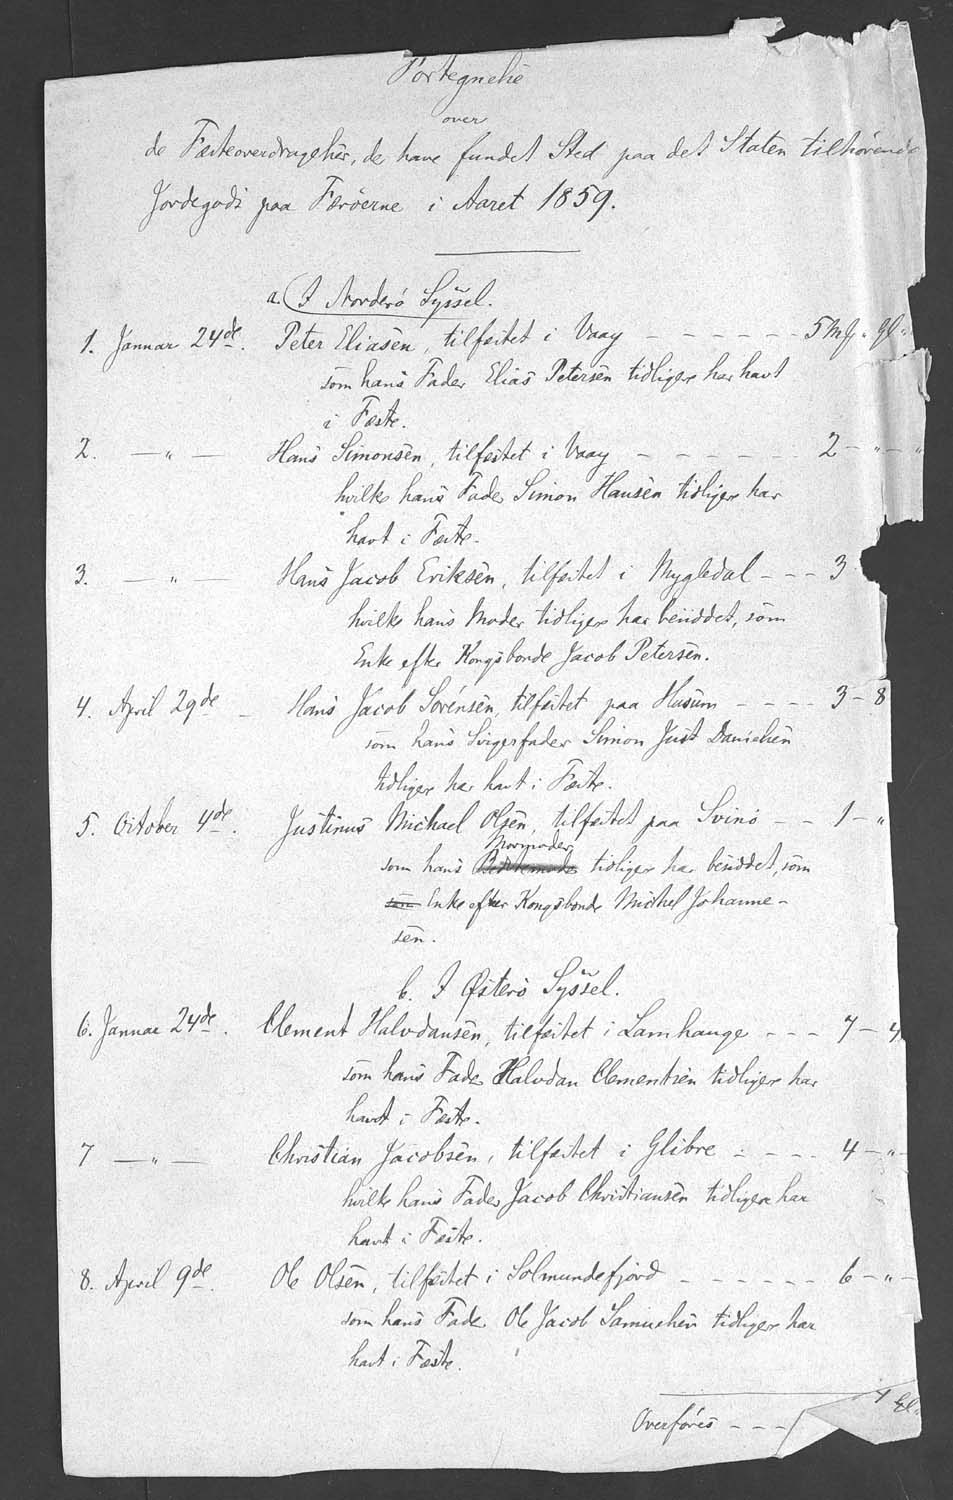 Fortegnelse
over
de Fæsteoverdragelser, der have fundet Sted paa det Staten tilhørende
Jordegods paa Færöerne i Aaret 1859.
a. I Norderö Syssel.
1. Januar 24de. Peter Eliasen, tilfæstet i Vaag - - - - - - 5 Mk " Gl "
som hans Fader Elias Petersen tidligere har havt
i Fæste.
2. — " — Hans Simonsen, tilfæstet i Vaag - - - - - - 2 - " - "
hvilke hans Fader Simon Hansen tidligere har
havt i Fæste.
3. — " — Hans Jacob Eriksen, tilfæstet i Mygledal - - - 3
hvilke hans Moder tidligere har besiddet, som
Enke efter Kongsbonde Jacob Petersen.
4. April 29de — Hans Jacob Sörensen, tilfæstet paa Husum - - - - 3 - 8
som hans Svigerfader Simon Just Danielsen
tidligere har havt i Fæste.
5. October 4de. Justinus Michael Olsen, tilfæstet paa Svinö - - 1 - "
Mormoder
som hans Bedstemoder tidligere har besiddet, som
som Enke efter Kongsbonde Michel Johanne-
sen.
b. I Österö Syssel.
6. Januar 24de. Clement Halvdansen, tilfæstet i Lamhauge - - - 7 - 4
som hans Fader Halvdan Clementsen tidligere har
havt i Fæste.
7 — " — Christian Jacobsen, tilfæstet i Glibre - - - - 4 - " -
hvilke hans Fader Jacob Christiansen tidligere har
havt i Fæste.
8. April 9de. Ole Olsen, tilfæstet i Solmundefjord - - - - - - 6 - " -
som hans Fader Ole Jacob Samuelsen tidligere har
havt i Fæste.
Overföres - - -